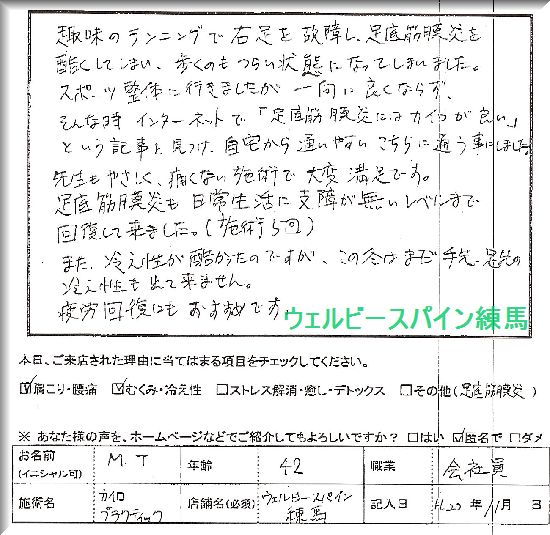 趣味のランニングで右足を故障し、足底筋膜炎を
酷くしてしまい、歩くのもつらい状態になってしまいました。
スポーツ整体に行きましたが一向に良くならず、
そんな時インターネットで「足底筋膜炎にはカイロが良い」
という記事を見つけ、自宅から通いやすいこちらに通う事にしました。
先生もやさしく、痛くない施術で大変満足です。
足底筋膜炎も日常生活に支障が無いレベルまで
回復して来ました。(施術5回)
また、冷え性が酷かったのですが、この冬はまだ手先、足先の
冷え性も出て来ません。
疲労回復にもおすすめです。
ウェルビースパイン練馬
本日、ご来店された理由に当てはまる項目をチェックしてください。
☑肩こり・腰痛 ☑むくみ・冷え性 □ストレス解消・癒し・デトックス □その他(足底筋膜炎)
※ あなた様の声を、ホームページなどでご紹介してもよろしいですか? □はい ☑匿名で □ダメ
お名前 (イニシャル可) M.T 年齢 42 職業 会社員
施術名 カイロプラクティック 店舗名(必須) ウェルビースパイン練馬 記入日 H23年 11月 日